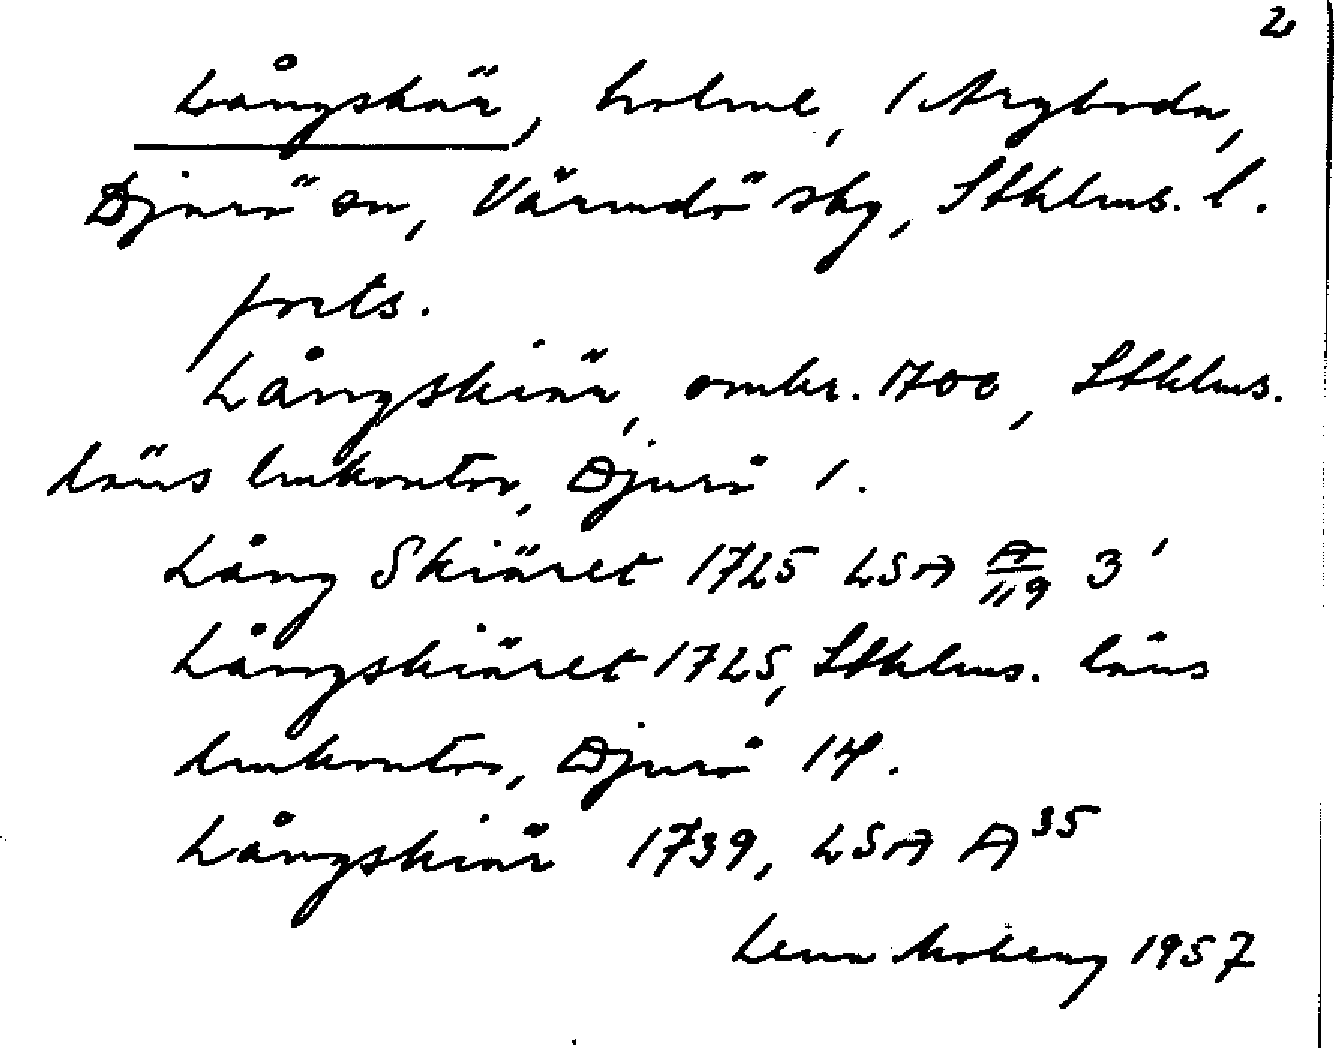 2
Långskär, holme, 1 Argboda,
Djurö sn, Värmdö skg, Sthlms. l.
forts.
Långskiär, omkr. 1700, Sthlms.
läns lmkontor, Djurö 1.
Lång Skiäret 1725 LSA A/119 3¹
Långskiäret 1725, Sthlms. läns
lmkontor, Djurö 14.
Långskiär 1739, LSA A³⁵
Lena Moberg 1957